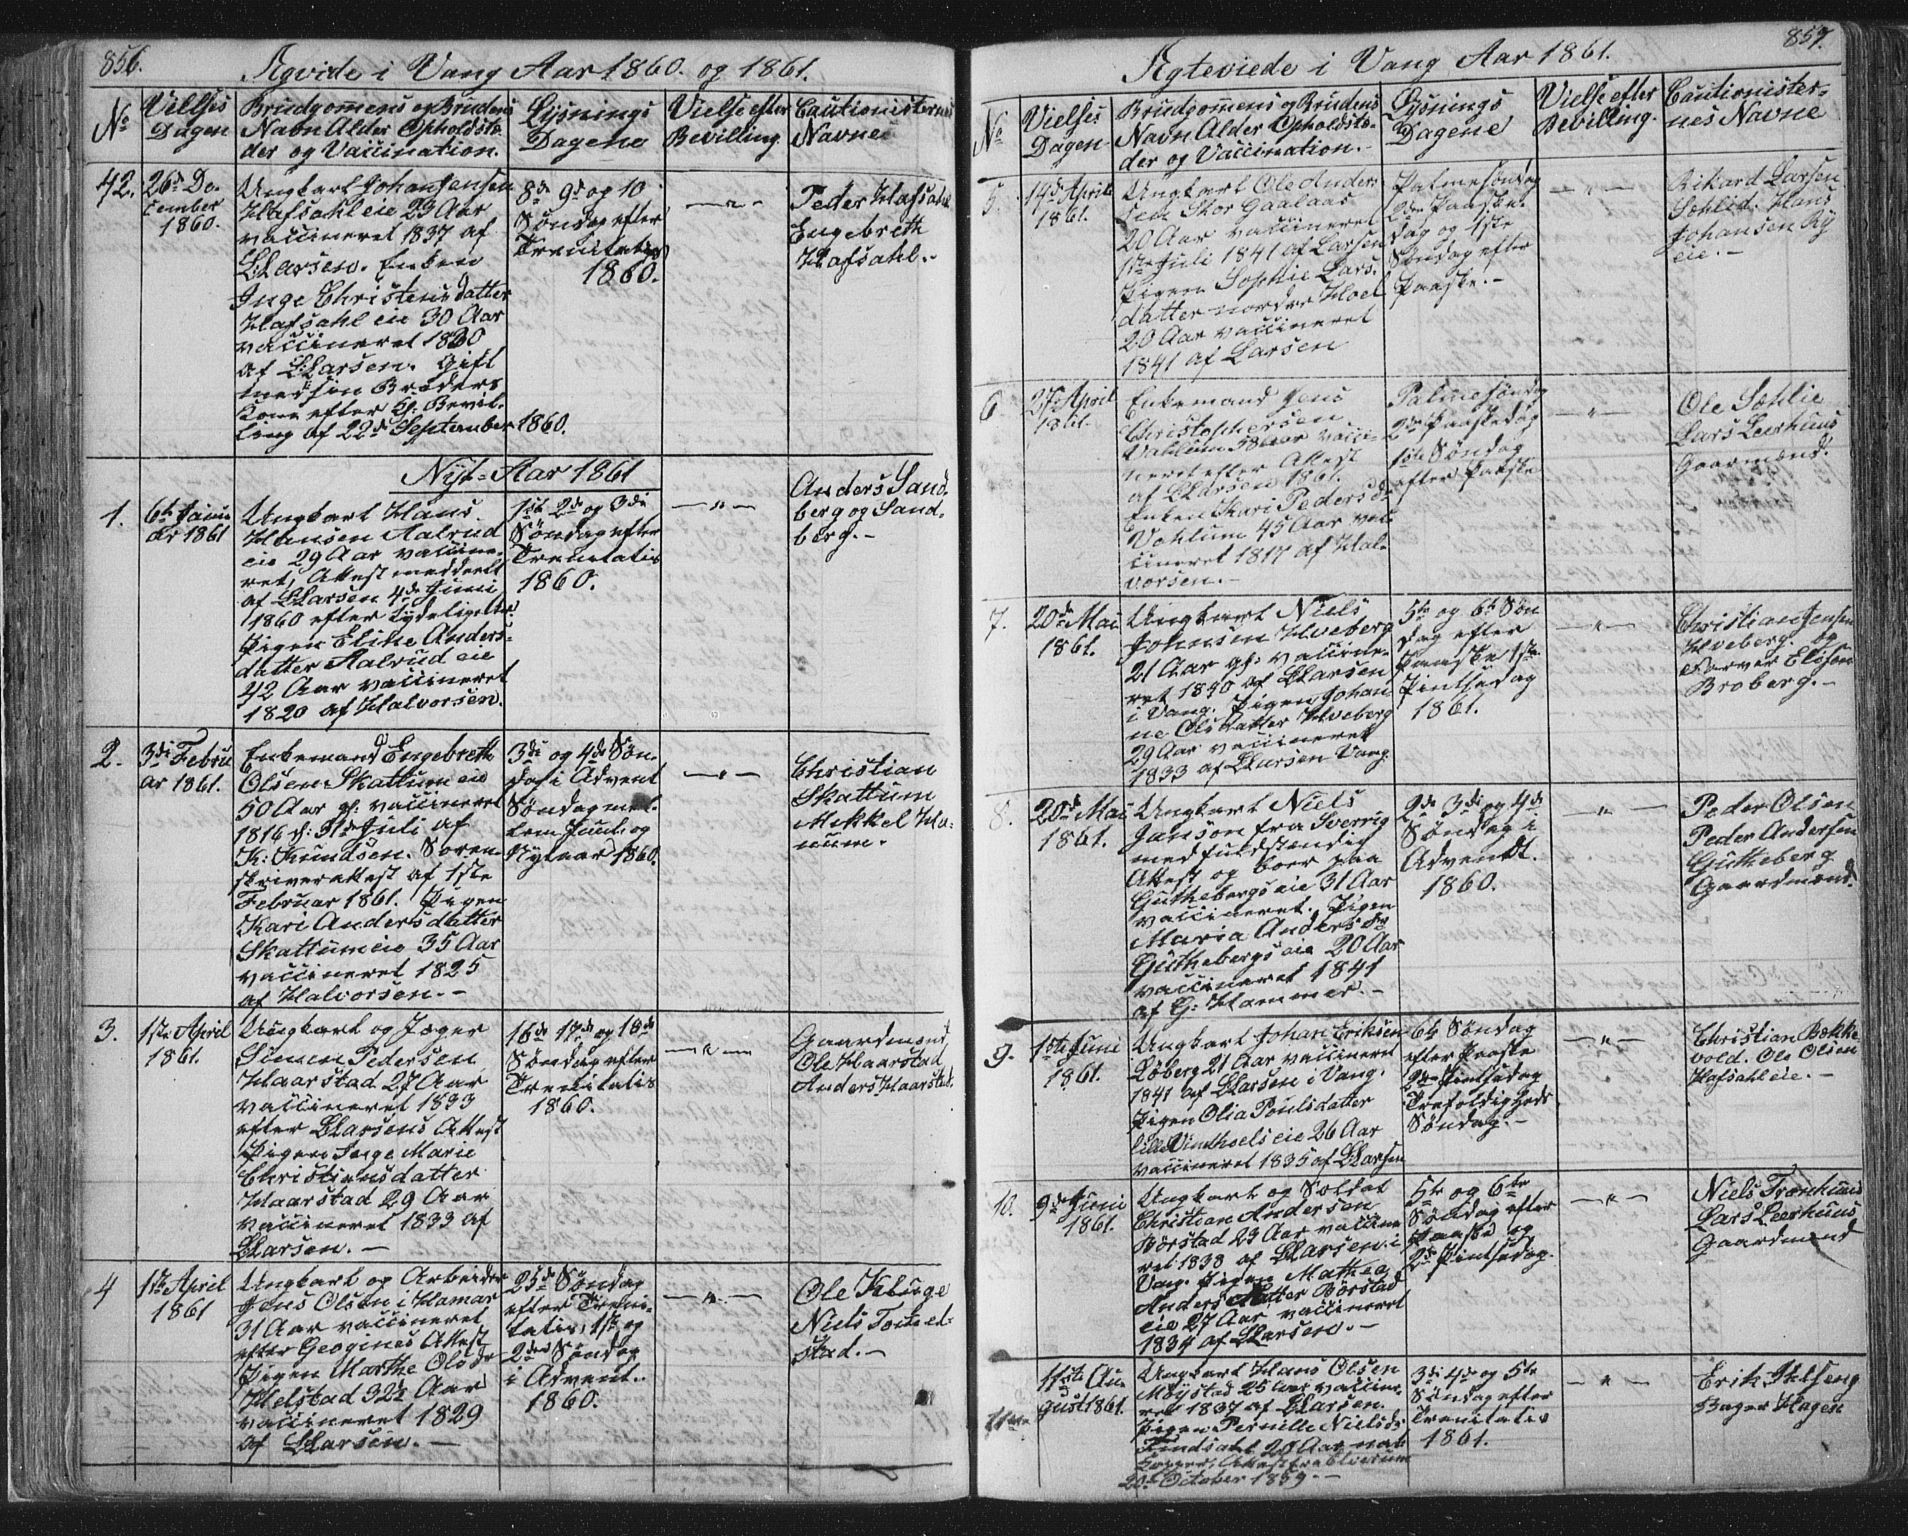 856.
Ægvide i Vang Aar 1860. og 1861.
No
Vielses
Dagen
Brudgommens og Brudens
Navn Alder Opholdste-
der og Vaccination.
Lysnings
Dagene
Vielse efter
Bevilling
Cautionisternes
Navne
42.
26de De-
cember
1860.
Ungkarl Johan Jensen
Hafsahl eie 23 Aar
vaccineret 1837 af
L. Larsen. Enken
Inge Christensdatter
Hafsahl eie 30 Aar
vaccineret 1830
af L. Larsen. Gift
med sin Broders
Kone efter Bevil-
ling af 22de September 1860.
8de 9de og 10
Søndag efter
Trenitatis
1860.
— " —
Peder Hafsahl
Engebreth
Hafsahl. -
Nyt-Aar 1861
1.
6te Janu
ar 1861
Ungkarl Hans
Hansen Aalrud
eie 29 Aar vaccine-
ret, Attest meddeelt
af L. Larsen 4de Juni
1860 efter Tydelighed
Pigen Eline Anders-
datter Aalrud eie
42 Aar vaccineret
1820 af Halvorsen.
1ste 2de og 3die
Søndag efter
Trenitatis
1860.
— " —
Anders Sand-
berg og Sand-
berg. -
2.
3die Febru
ar 1861.
Enkemand Engebreth
Olsen Skattum eie
50 Aar gl. vaccineret
1816 d. 31de Juli af
K. Knudsen. Soren-
skriverattest af 1ste
Februar 1861. Pigen
Kari Andersdatter
Skattum eie 35 Aar
vaccineret 1825
af Halvorsen. -
3die og 4de Søn-
dag i Advent
Søndag mel-
lem Juul og
Nytaar 1860.
— " —
Christian
Skattum
Mikkel Ha-
num.
3.
1ste April
1861.
Ungkarl og Jæger
Simen Pedersen
Haarstad 27 Aar
vaccineret 1833
efter L. Larsens Attest
Pigen Inge Marie
Christiansdatter
Haarstad 29 Aar
vaccineret 1833 af
L. Larsen. -
16de 17de og 18de
Søndag efter
Trenitatis
1860.
— " —
Gaardmænd,
Ole Haarstad
Anders Haarstad.
4
1ste April
1861
Ungkarl og Arbeider
Jens Olsen i Hamar
31 Aar vaccineret
efter Geogines Attest
Pigen Marthe Olsdr
Helstad 32½ Aar
vaccineret 1829
af L. Larsen. -
25de Søndag
efter Treni-
tatis, 1ste og
2den Søndag
i Advent.
1860.
— " —
Ole Kluge
Niels Tommel-
stad. -
857.
Ægteviede i Vang Aar 1861.
No
Vielses
Dagen
Brudgommens og Brudens
Navn Alder Opholdste-
der og Vaccination. -
Lysnings
Dagene
Vielse efter
Bevilling.
Cautionister-
nes Navne
5.
14de April
1861.
Ungkarl Ole Anders
sen Skor Gaalaas
20 Aar vaccineret
1ste Juli 1841 af Larsen
Pigen Sophie Lars-
datter nordre Hoel
20 Aar vaccineret
1841 af Larsen
Palmesøndag
2den Paaske-
dag og 1ste
Søndag efter
Paaske. -
— " —
Rikard Larsen
Sohlid. Hans
Johansen Ry
eie. -
6
27de April
1861.
Enkemand Jens
Christophersen
Vahlum 58 Aar vacci-
neret efter Attest
af L. Larsen 1861.
Enken Kari Pedersdr
Vahlum 45 Aar vac
cineret 1817 af Hal-
vorsen. -
Palmesøndag
2den Paaskedag
1ste Søndag
efter Paaske
— " —
Ole Sohlie
Lars Leerhuus
Gaarmænd.
7.
20de Mai
1861.
Ungkarl Niels
Johnsen Hveberg
21 Aar gl. vaccine-
ret 1840 af L. Larsen
i Vang. Pigen Johan
ne Olsdatter Hveberg
29 Aar vaccineret
1833 af L. Larsen Vang.
5te og 6te Søn
dag efter
Paaske 1ste
Pintsedag
1861.
— " —
Christian Jensen
Hveberg og
Farver Elisen
Broberg. -
8.
20de Mai
1861.
Ungkarl Niels
Janson fra Sverrig
med fuldstændig
Attest og boer paa
Guthebergs eie 31 Aar
vaccineret. Pigen
Maria Andersdr
Guthebergs eie 20 Aar
vaccineret 1841
af G. Hammer. -
2de 3die og 4de
Søndag i
Advendt.
1860.
— " —
Peder Olsen
Peder Andersen
Gutheberg
Gaardmænd.
9.
1ste Juni
1861.
Ungkarl Johan Eriksen
Loberg 21 Aar vaccineret
1841 af L. Larsen i Vang.
Pigen Olia Poulsdatter
Lille Vindhoels eie 26 Aar
vaccineret 1835 af L. Larsen
6te Søndag
efter Paaske
2den Pintsedag
Trefoldigheds
Søndag. -
— " —
Christian Bække-
vold. Ole Olsen
Hafsahl eie. -
10.
9de Juni
1861.
Ungkarl og Soldat
Christian Andersen
Børstad 23 Aar vaccine
ret 1838 af L. Larsen i
Vang. Pigen Mathea
Andersdatter Børstad
eie 27 Aar vaccineret
1834 af L. Larsen. -
5te og 6te
Søndag efter
Paaske og
2de Pintsedag.
— " —
Niels Frønhuus
Lars Leerhuus
Gaardmænd
11te
11te Au-
gust 1861.
Ungkarl Hans Olsen
Møystad 25 Aar vaccine-
ret 1837 af L. Larsen.
Pigen Pernille Nielsdr
Findsahl 28 Aar nat
Kopper, Attest fra Elverum
20de October 1859. -
3die 4de og 5te
Søndag efter
Trenitatis
1861.
— " —
Erik Ihlseng
Bager Hagen